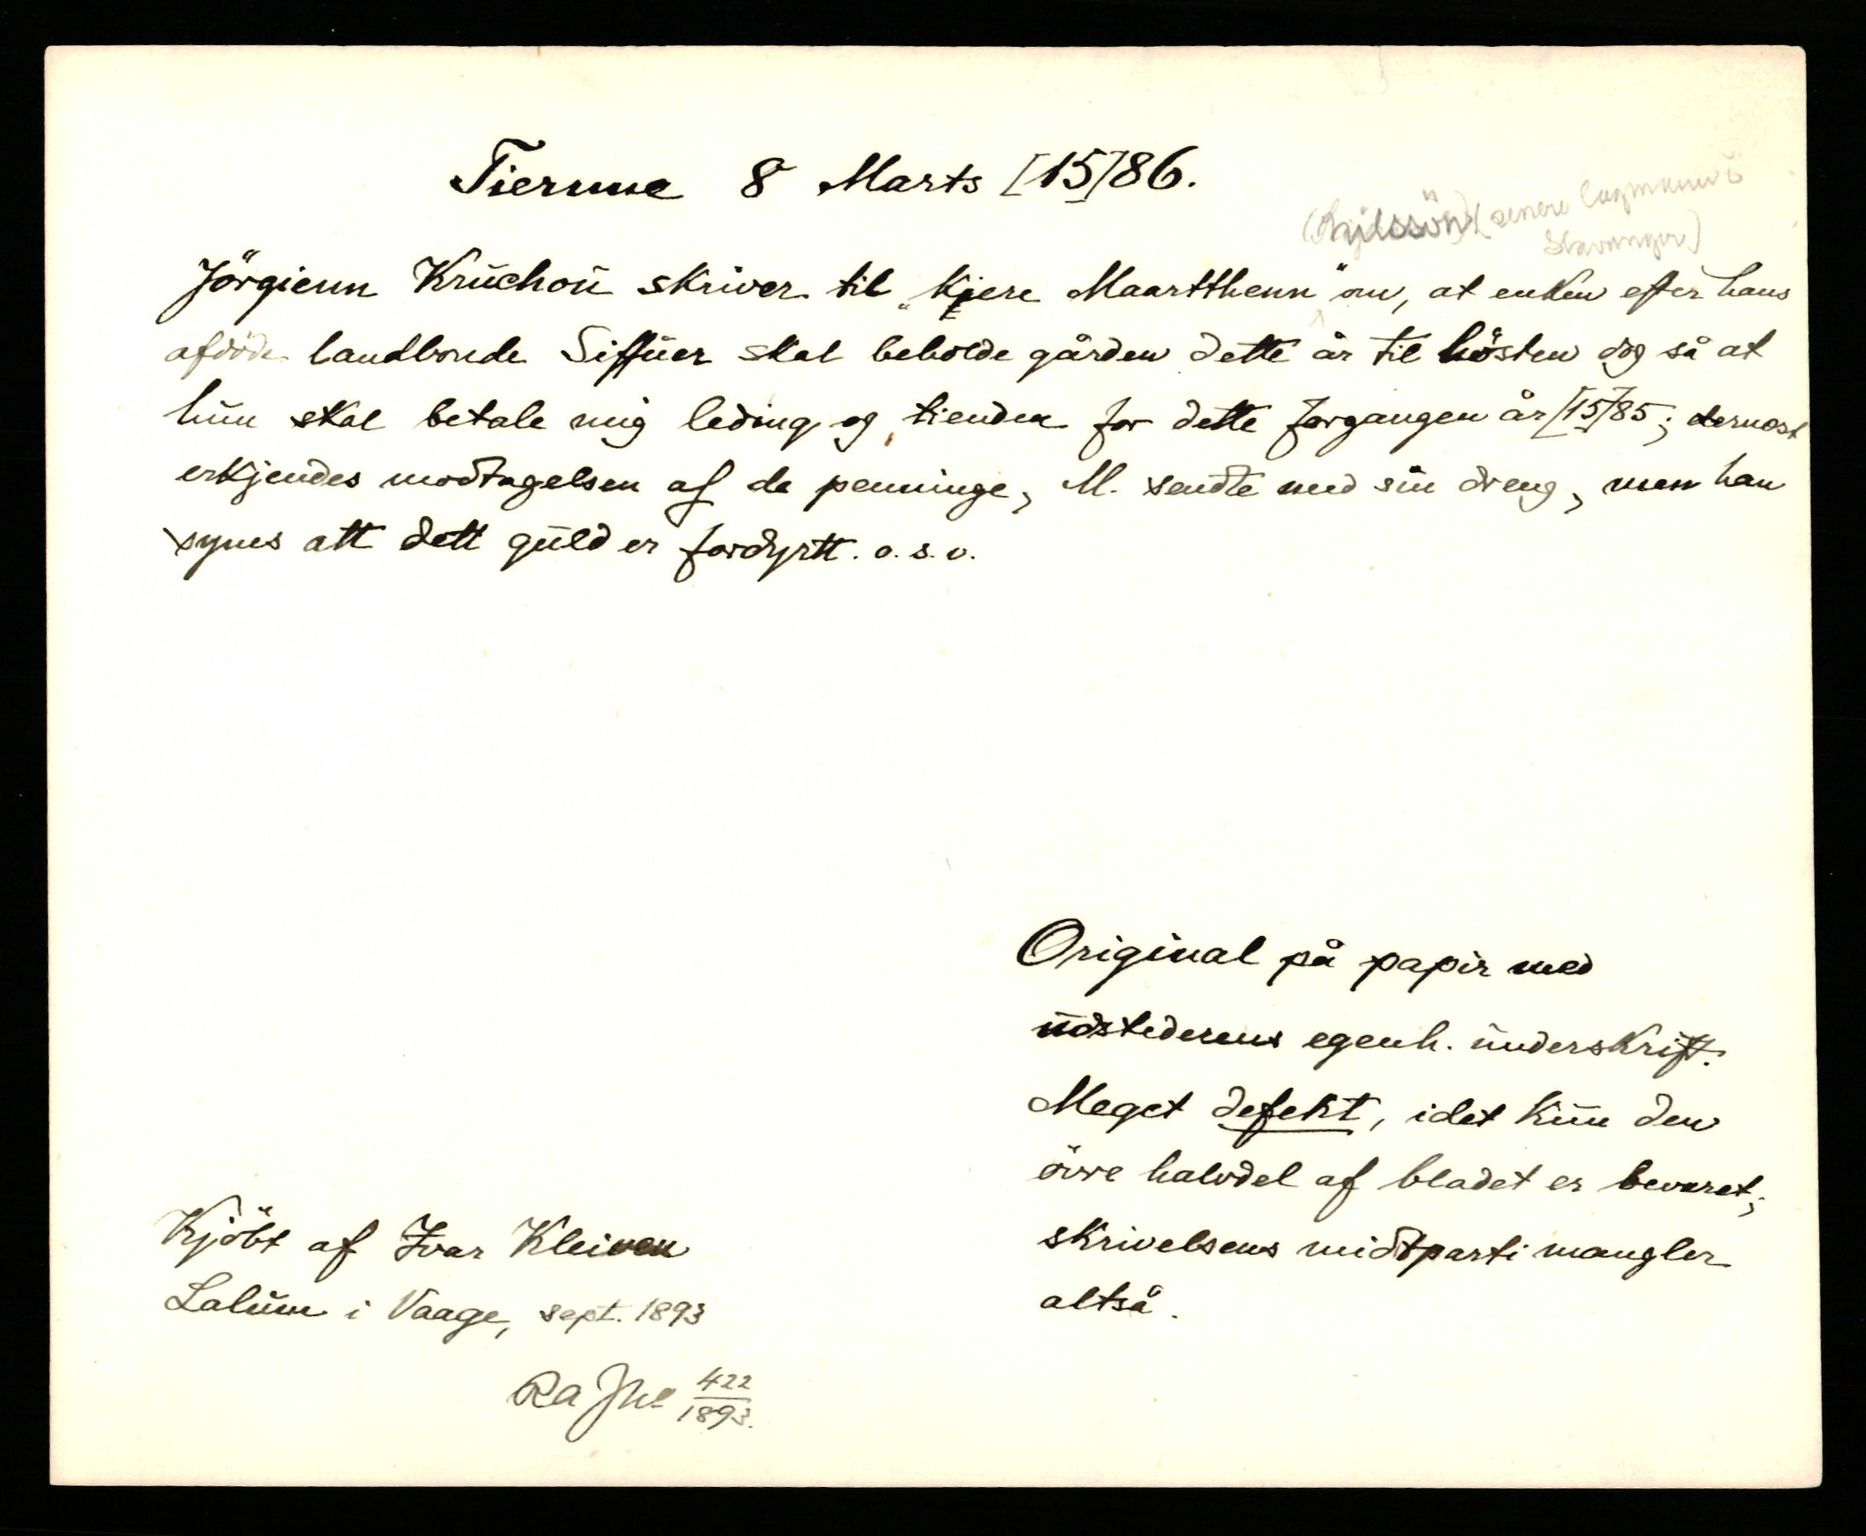 Tiernne 8 Marts [15]86.
(senere lagmann i
Stavanger)
Jörgienn Kruchou skriver til "Kjere Maartthenn" om, at enken efter hans
afdöde landbonde Siffuer skal beholde gården dette år til hösten dog så at
hun skal betale mig leding og tienden for dette forgangen år [15]85; dernæst
erkjendes modtagelsen af de penninge, M. sendte med sin dreng, men han
synes att dett guld er fordyrtt. o.s.v.
Original på papir med
udstederens egenh. underskrift.
Meget defekt, idet kun den
övre halvdel af bladet er bevaret;
skrivelsens midtparti mangler
altså.
Kjöbt af Ivar Kleiven
Lalum i Vaage, sept. 1893
RA Jnl 422/1893.